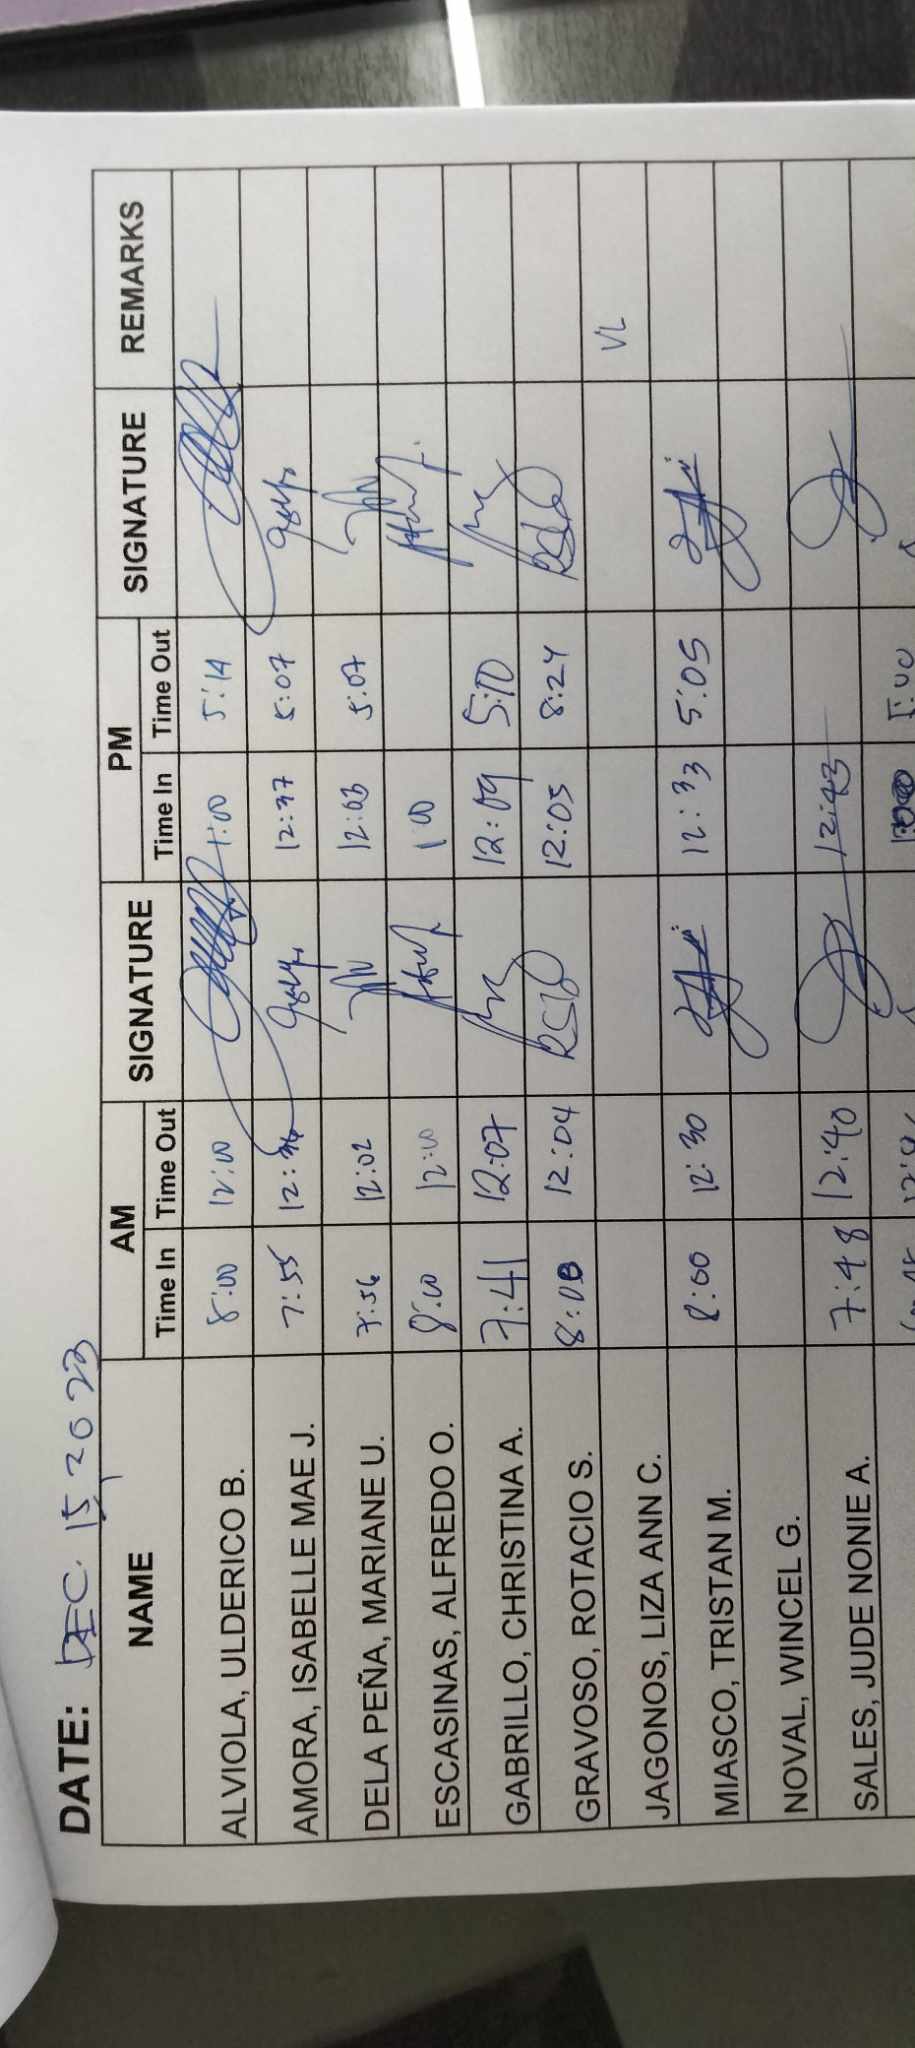 DATE: DEC. 15, 2023
NAME AM SIGNATURE PM SIGNATURE REMARKS
Time In Time Out Time In Time Out
ALVIOLA, ULDERICO B. 8:00 12:00 1:00 5:14
AMORA, ISABELLE MAE J. 7:55 12:36 12:37 5:07
DELA PEÑA, MARIANE U. 7:56 12:02 12:03 5:07
ESCASINAS, ALFREDO O. 8:00 12:00 1:00
GABRILLO, CHRISTINA A. 7:41 12:07 12:09 5:10
GRAVOSO, ROTACIO S. 8:00 12:04 12:05 8:24
JAGONOS, LIZA ANN C. VL
MIASCO, TRISTAN M. 8:00 12:30 12:33 5:05
NOVAL, WINCEL G.
SALES, JUDE NONIE A. 7:48 12:40 12:43